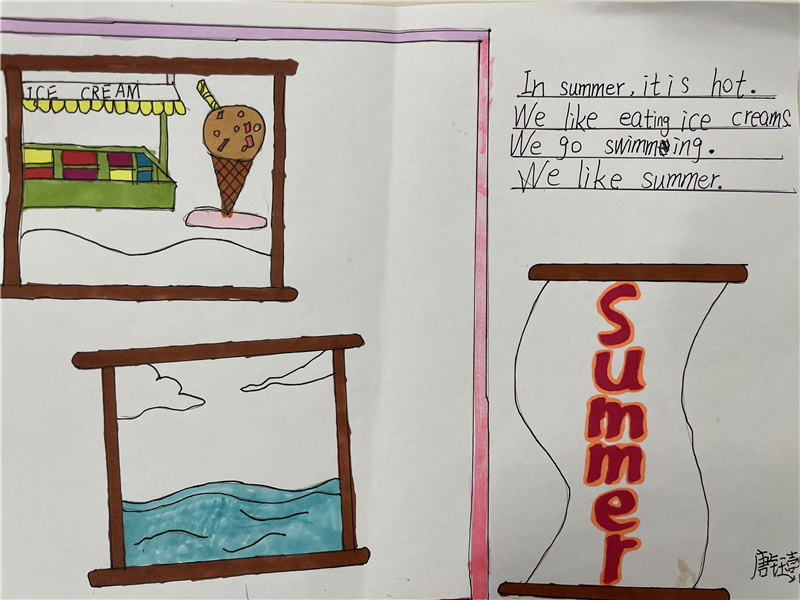 ICE CREAM
In summer, it is hot.
We like eating ice creams.
We go swimming.
We like summer.
summer